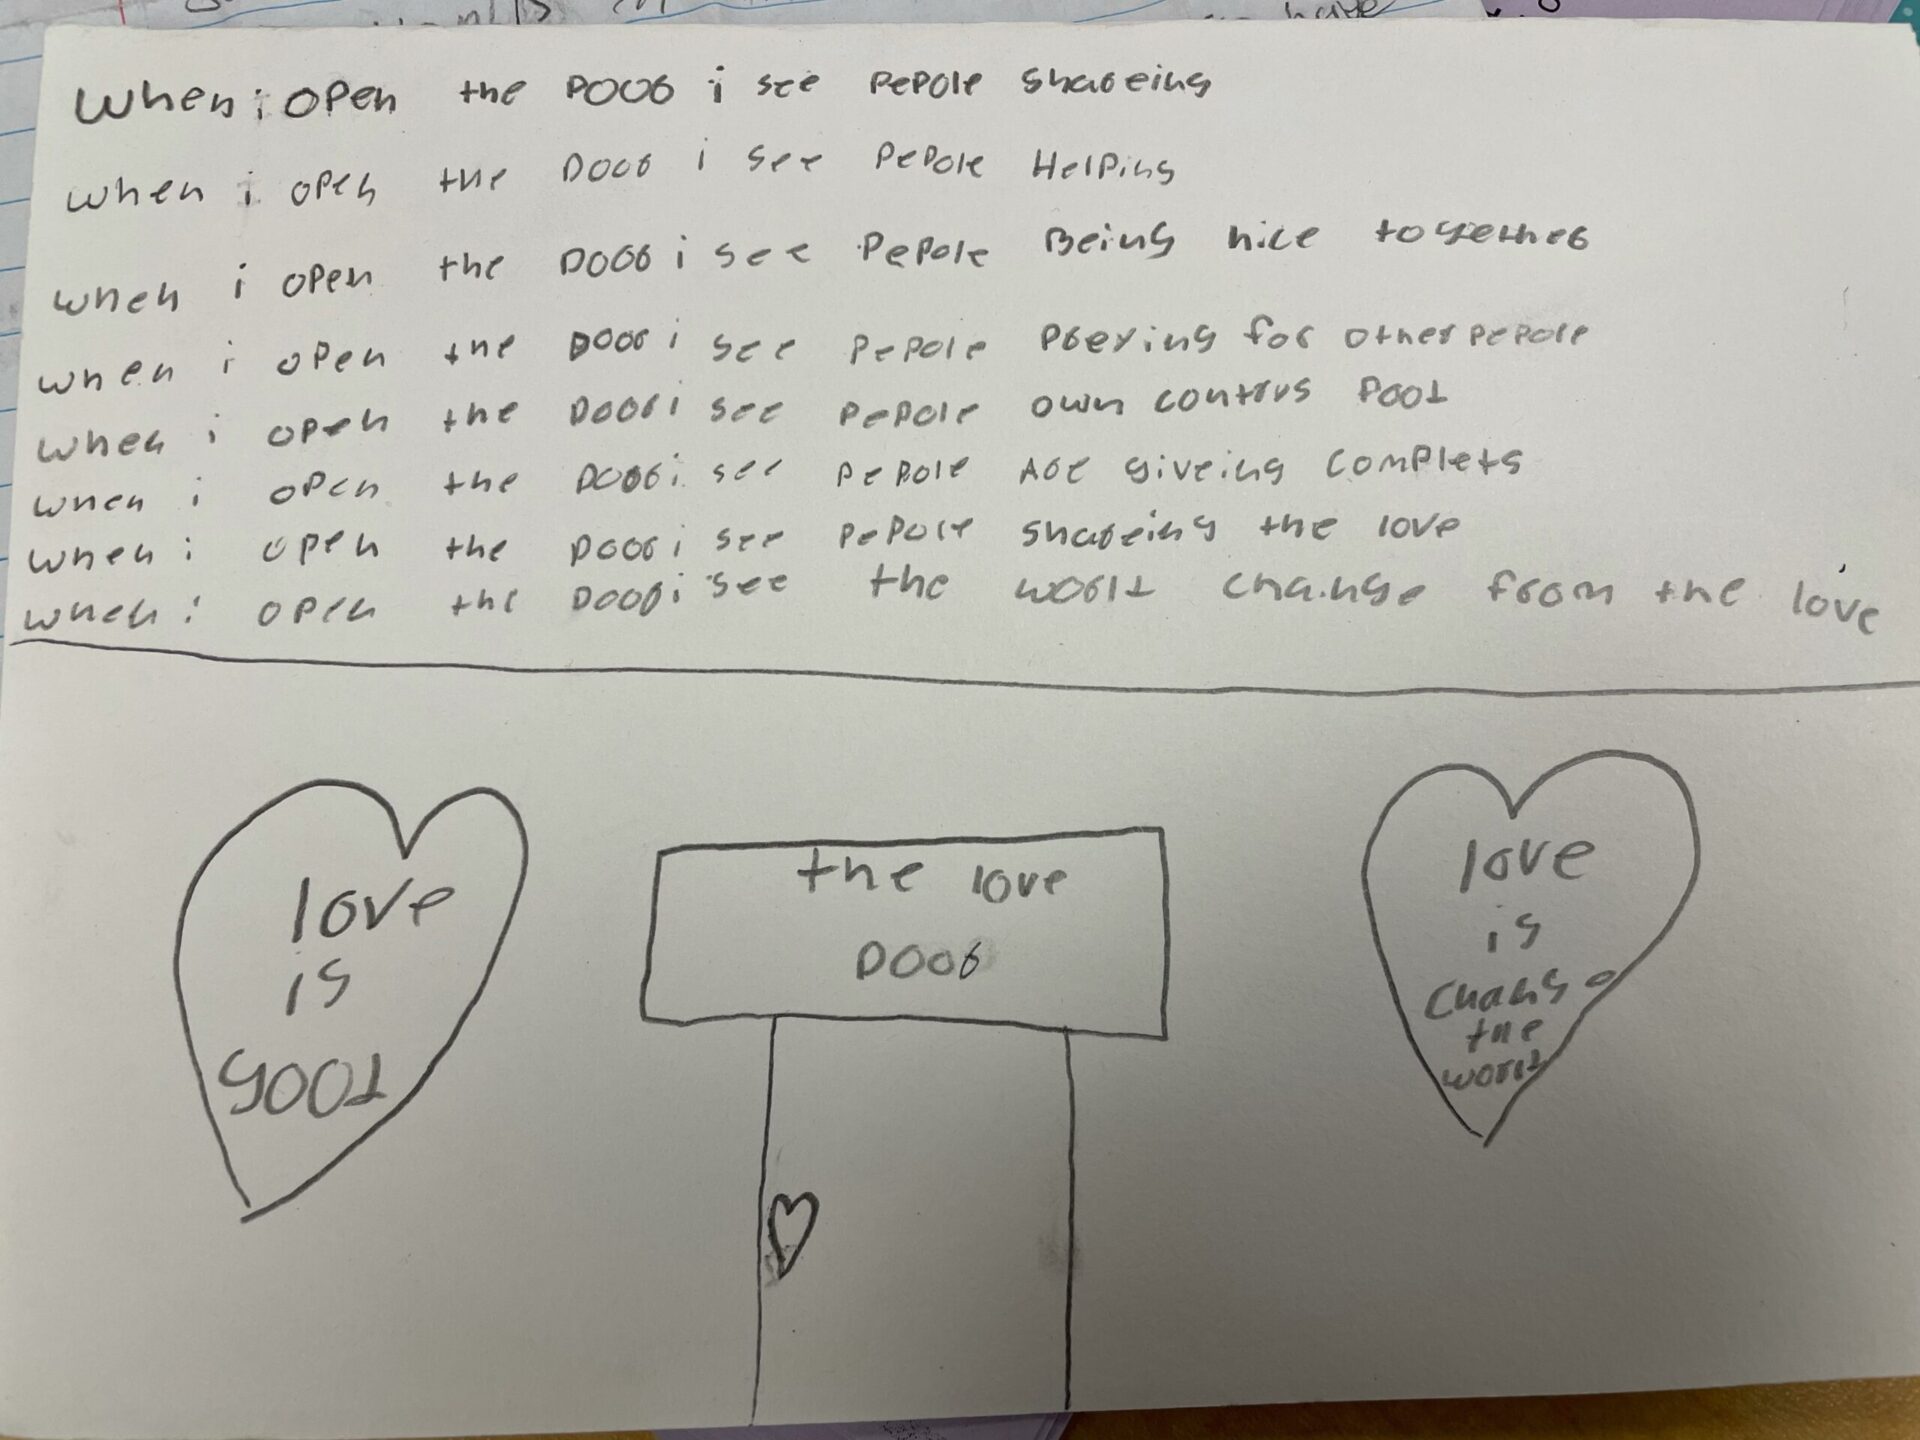 When i open the Door i see pepole shareing
when i open the Door i see pepole Helping
when i open the Door i see pepole Being nice together
when i open the Door i see pepole preying for other pepole
when i open the Door i see pepole own
when i open the Door i see pepole Are giveing complets
when i open the Door i see pepole shareing the love
when i open the Door i see the world change from the love
love
is
good
the love
Door
love
is
change
the
world